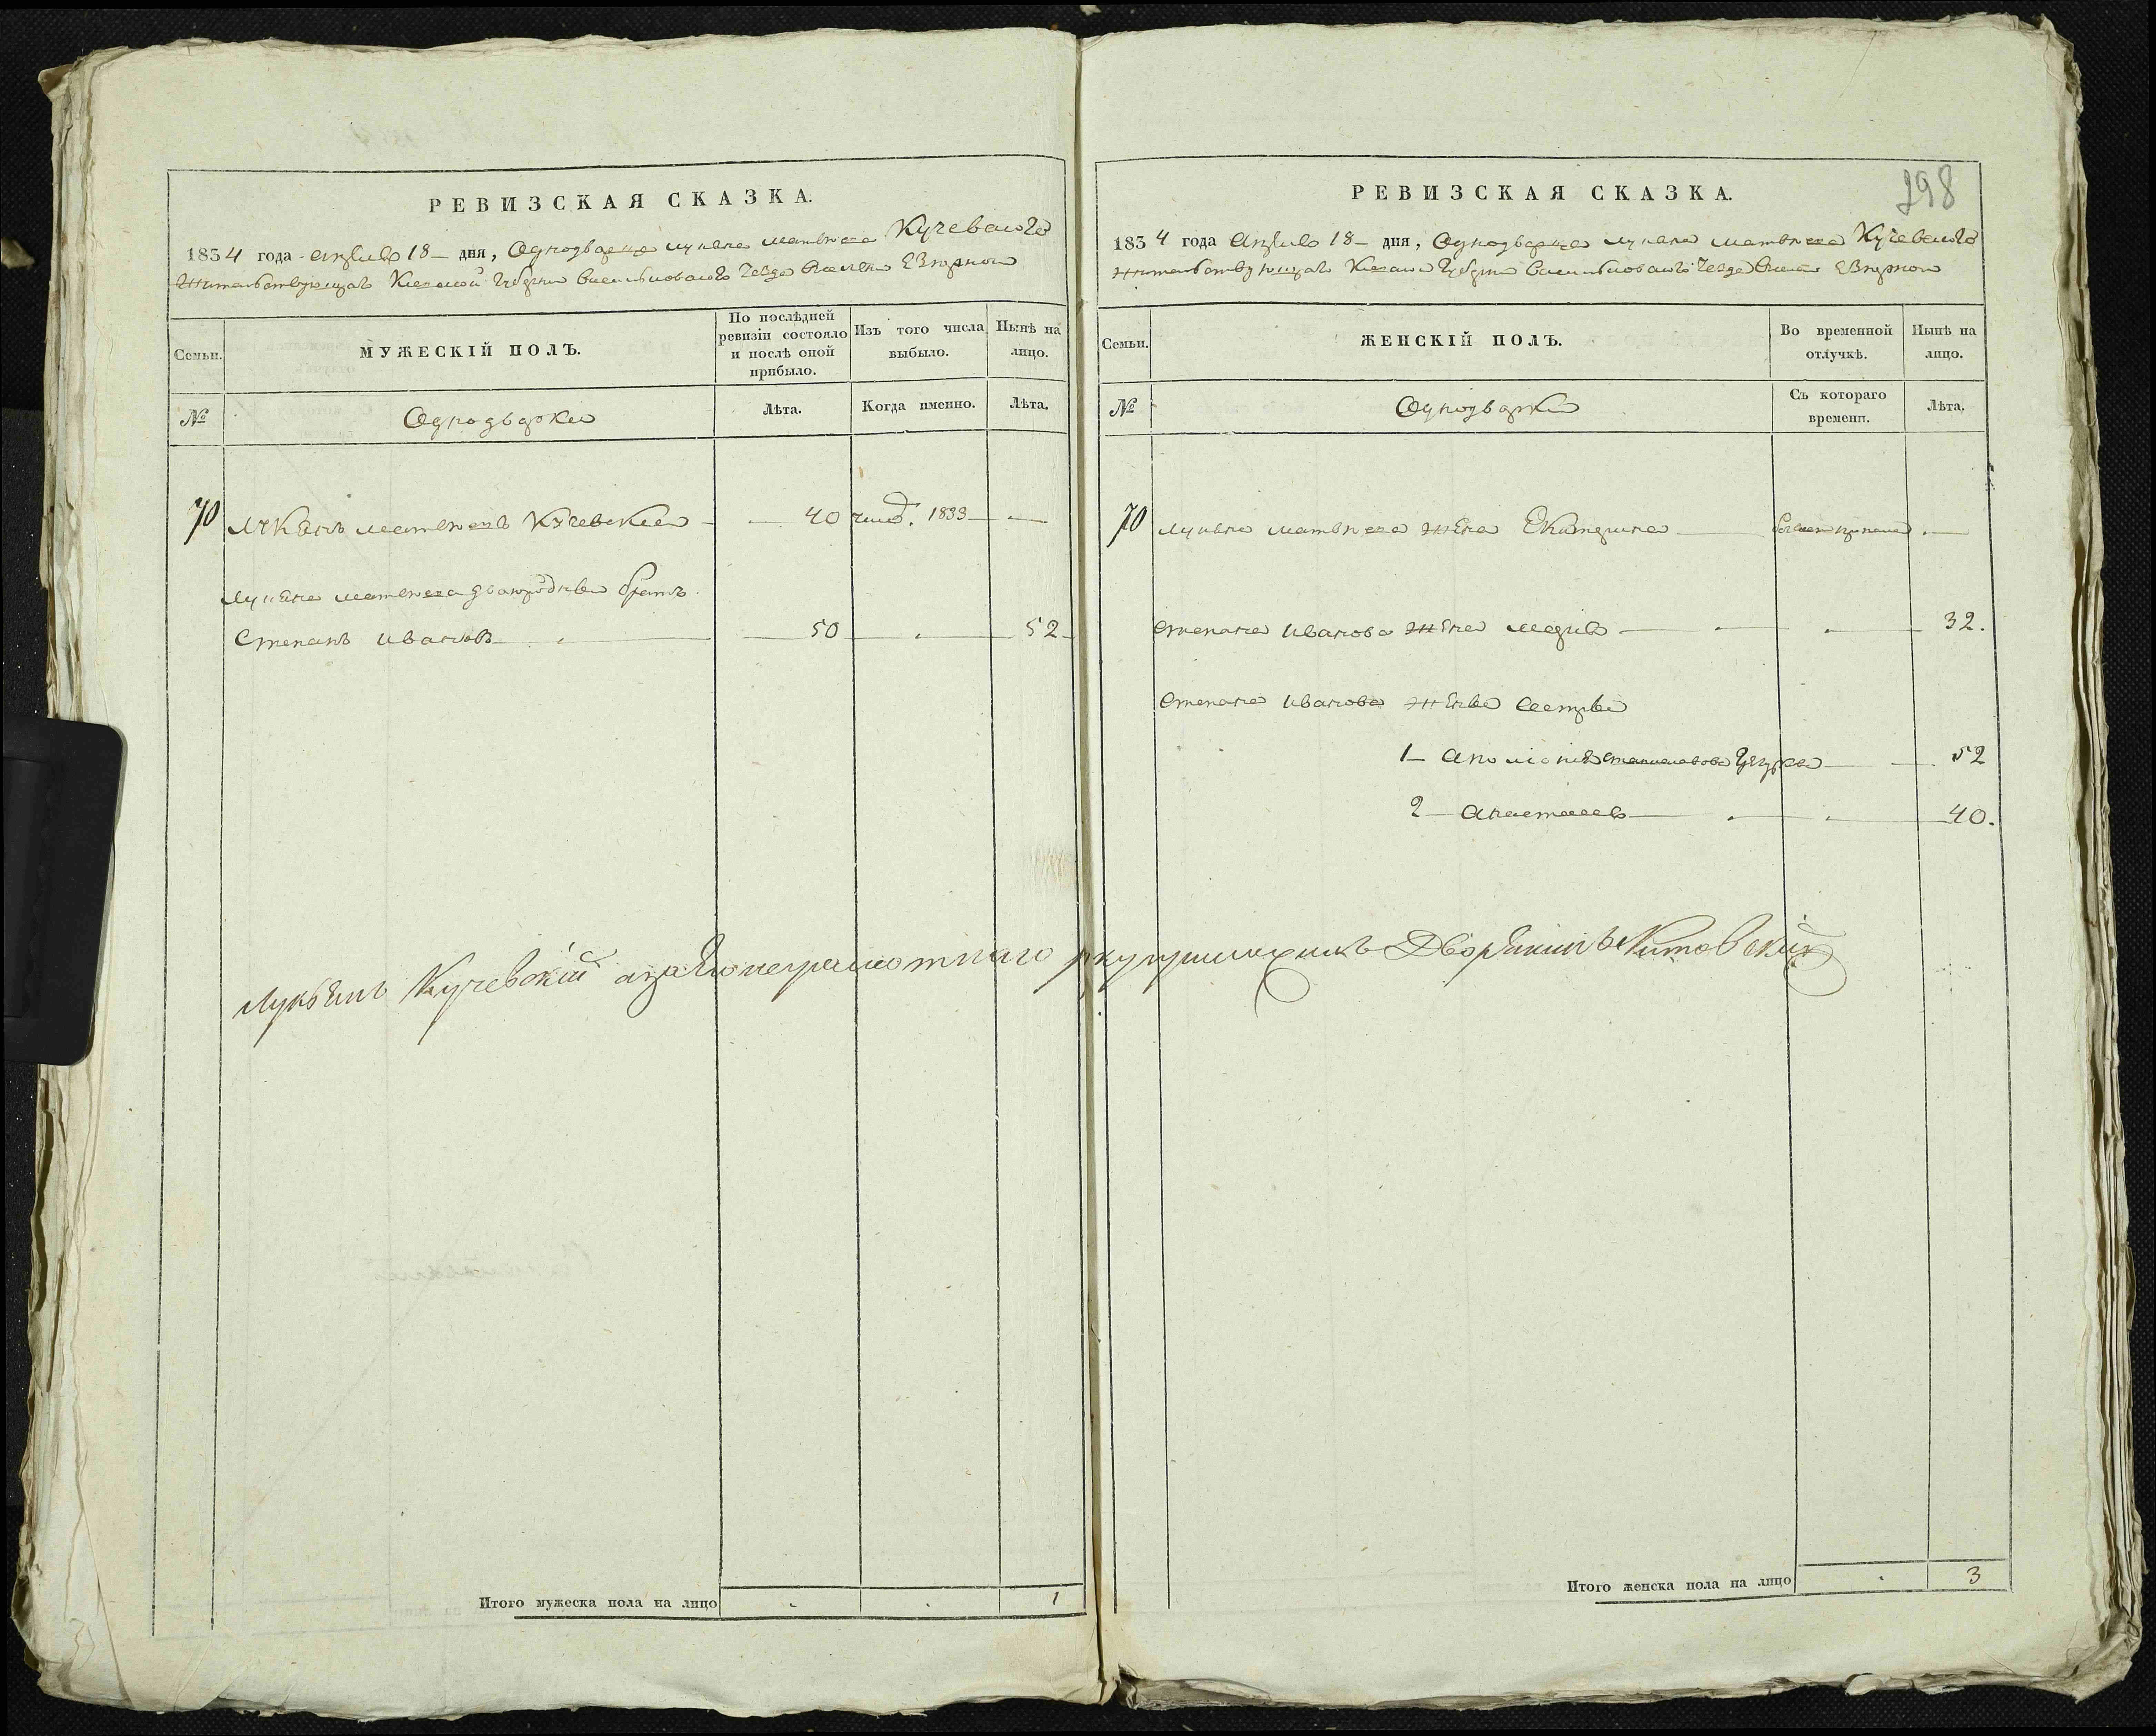 РЕВИЗСКАЯ СКАЗКА.
1834 года апреля 18 дня, Однодворца Лукяна Матвѣева Кучевского
жительствующаго Киевской Губернии Васильковского Уезда
Семьи.
МУЖЕСКІЙ ПОЛЪ.
По послѣдней ревизіи состояло и послѣ оной прибыло.
Изъ того числа выбыло.
Нынѣ на лицо.
№
Однодворки
Лѣта.
Когда именно.
Лѣта.
70 Лукянъ Матвѣевъ Кучевский 40 1833
Лукяна Матвѣева двоюродный братъ
Степанъ Ивановъ 50 52
Лукьянъ Кучевскій а за его неграмотнаго Дворянинъ
Итого мужеска пола на лицо 1
298
РЕВИЗСКАЯ СКАЗКА.
1834 года апреля 18 дня, Однодворца Лукяна Матвѣева Кучевского
жительствующаго Киевской Губернии Васильковского Уезда
Семьи.
ЖЕНСКІЙ ПОЛЪ.
Во временной отлучкѣ.
Нынѣ на лицо.
№
Однодворки
Съ котораго времени.
Лѣта.
70 Лукяна Матвѣева жена Екатерина
Степана Иванова жена Мария 32.
Степана Иванова жены сестры
1 Аполония 52
2 Анастасия 40.
Итого женска пола на лицо 3